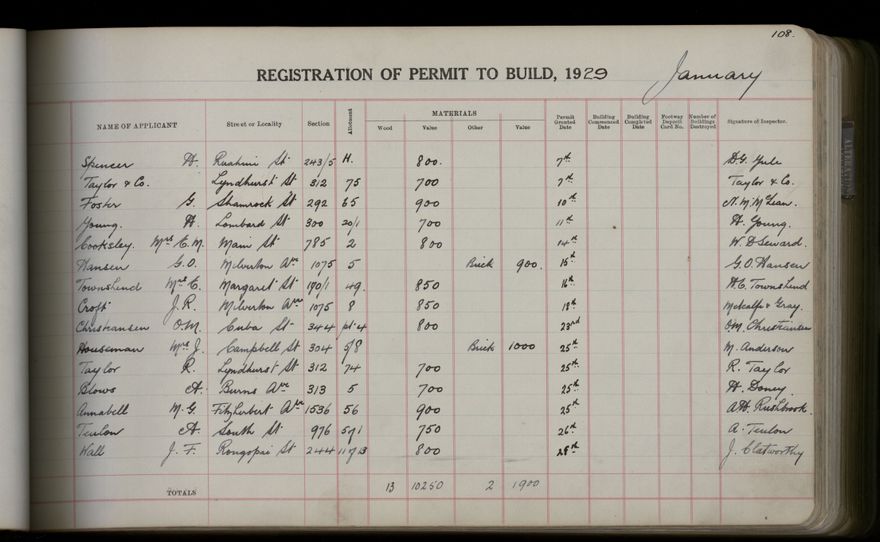 108.
REGISTRATION OF PERMIT TO BUILD, 1929 January
NAME OF APPLICANT Street or Locality Section Allotment MATERIALS Wood Value Other Value Permit Granted Date Building Commenced Date Building Completed Date Footway Deposit Card No. Number of Buildings Destroyed Signature of Inspector.
Spencer H. Ruahine St 243/5 H. 800. 7th D.G. Yule
Taylor & Co. Lyndhurst St 312 75 700 7th Taylor & Co.
Foster G. Shamrock St 292 65 900 10th N. M. McLean.
Young. H. Lombard St 300 20/1 700 11th H. Young.
Cooksley. Mrs E. M. Main St 785 2 800 14th W. D Seward.
Hansen G.O. Milverton Ave 1075 5 Brick 900. 15th G.O. Hansen
Townshend Mrs E. Margaret St 190/1 49. 850 16th H.E. Townshend
Croft J. R. Milverton Ave 1075 8 850 18th Metcalfe & Gray.
Christiansen O.M. Cuba St 344 pt 4 800 23rd O.M. Christiansen
Houseman Mrs J. Campbell St 304 5/8 Brick 1000 25th M. Anderson
Taylor R. Lyndhurst St 312 74 700 25th R. Taylor
Blows A. Burns Ave 313 5 700 25th H.
Annabell M. G. Fitzherbert Ave 1536 56 900 25th A.H. Rushbrook.
Teulon A. South St 976 750 26th A. Teulon
Wall J. F. Rongopai St 244 800 28th J. Clatworthy
TOTALS 13 10250 2 1900
ALTERATION